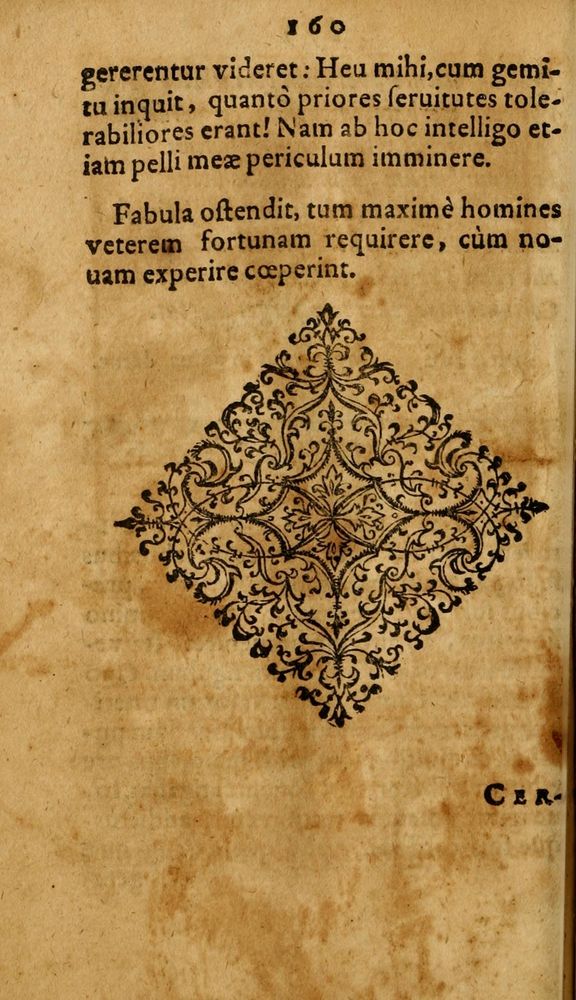 160
gererentur videret: Heu mihi, cum gemi-
tu inquit, quantò priores ſeruitutes tole-
rabiliores erant! Nam ab hoc intelligo et-
iam pelli meæ periculum imminere.
Fabula oſtendit, tum maximè homines
veterem fortunam requirere, cùm no-
uam experire cœperint.
CER-